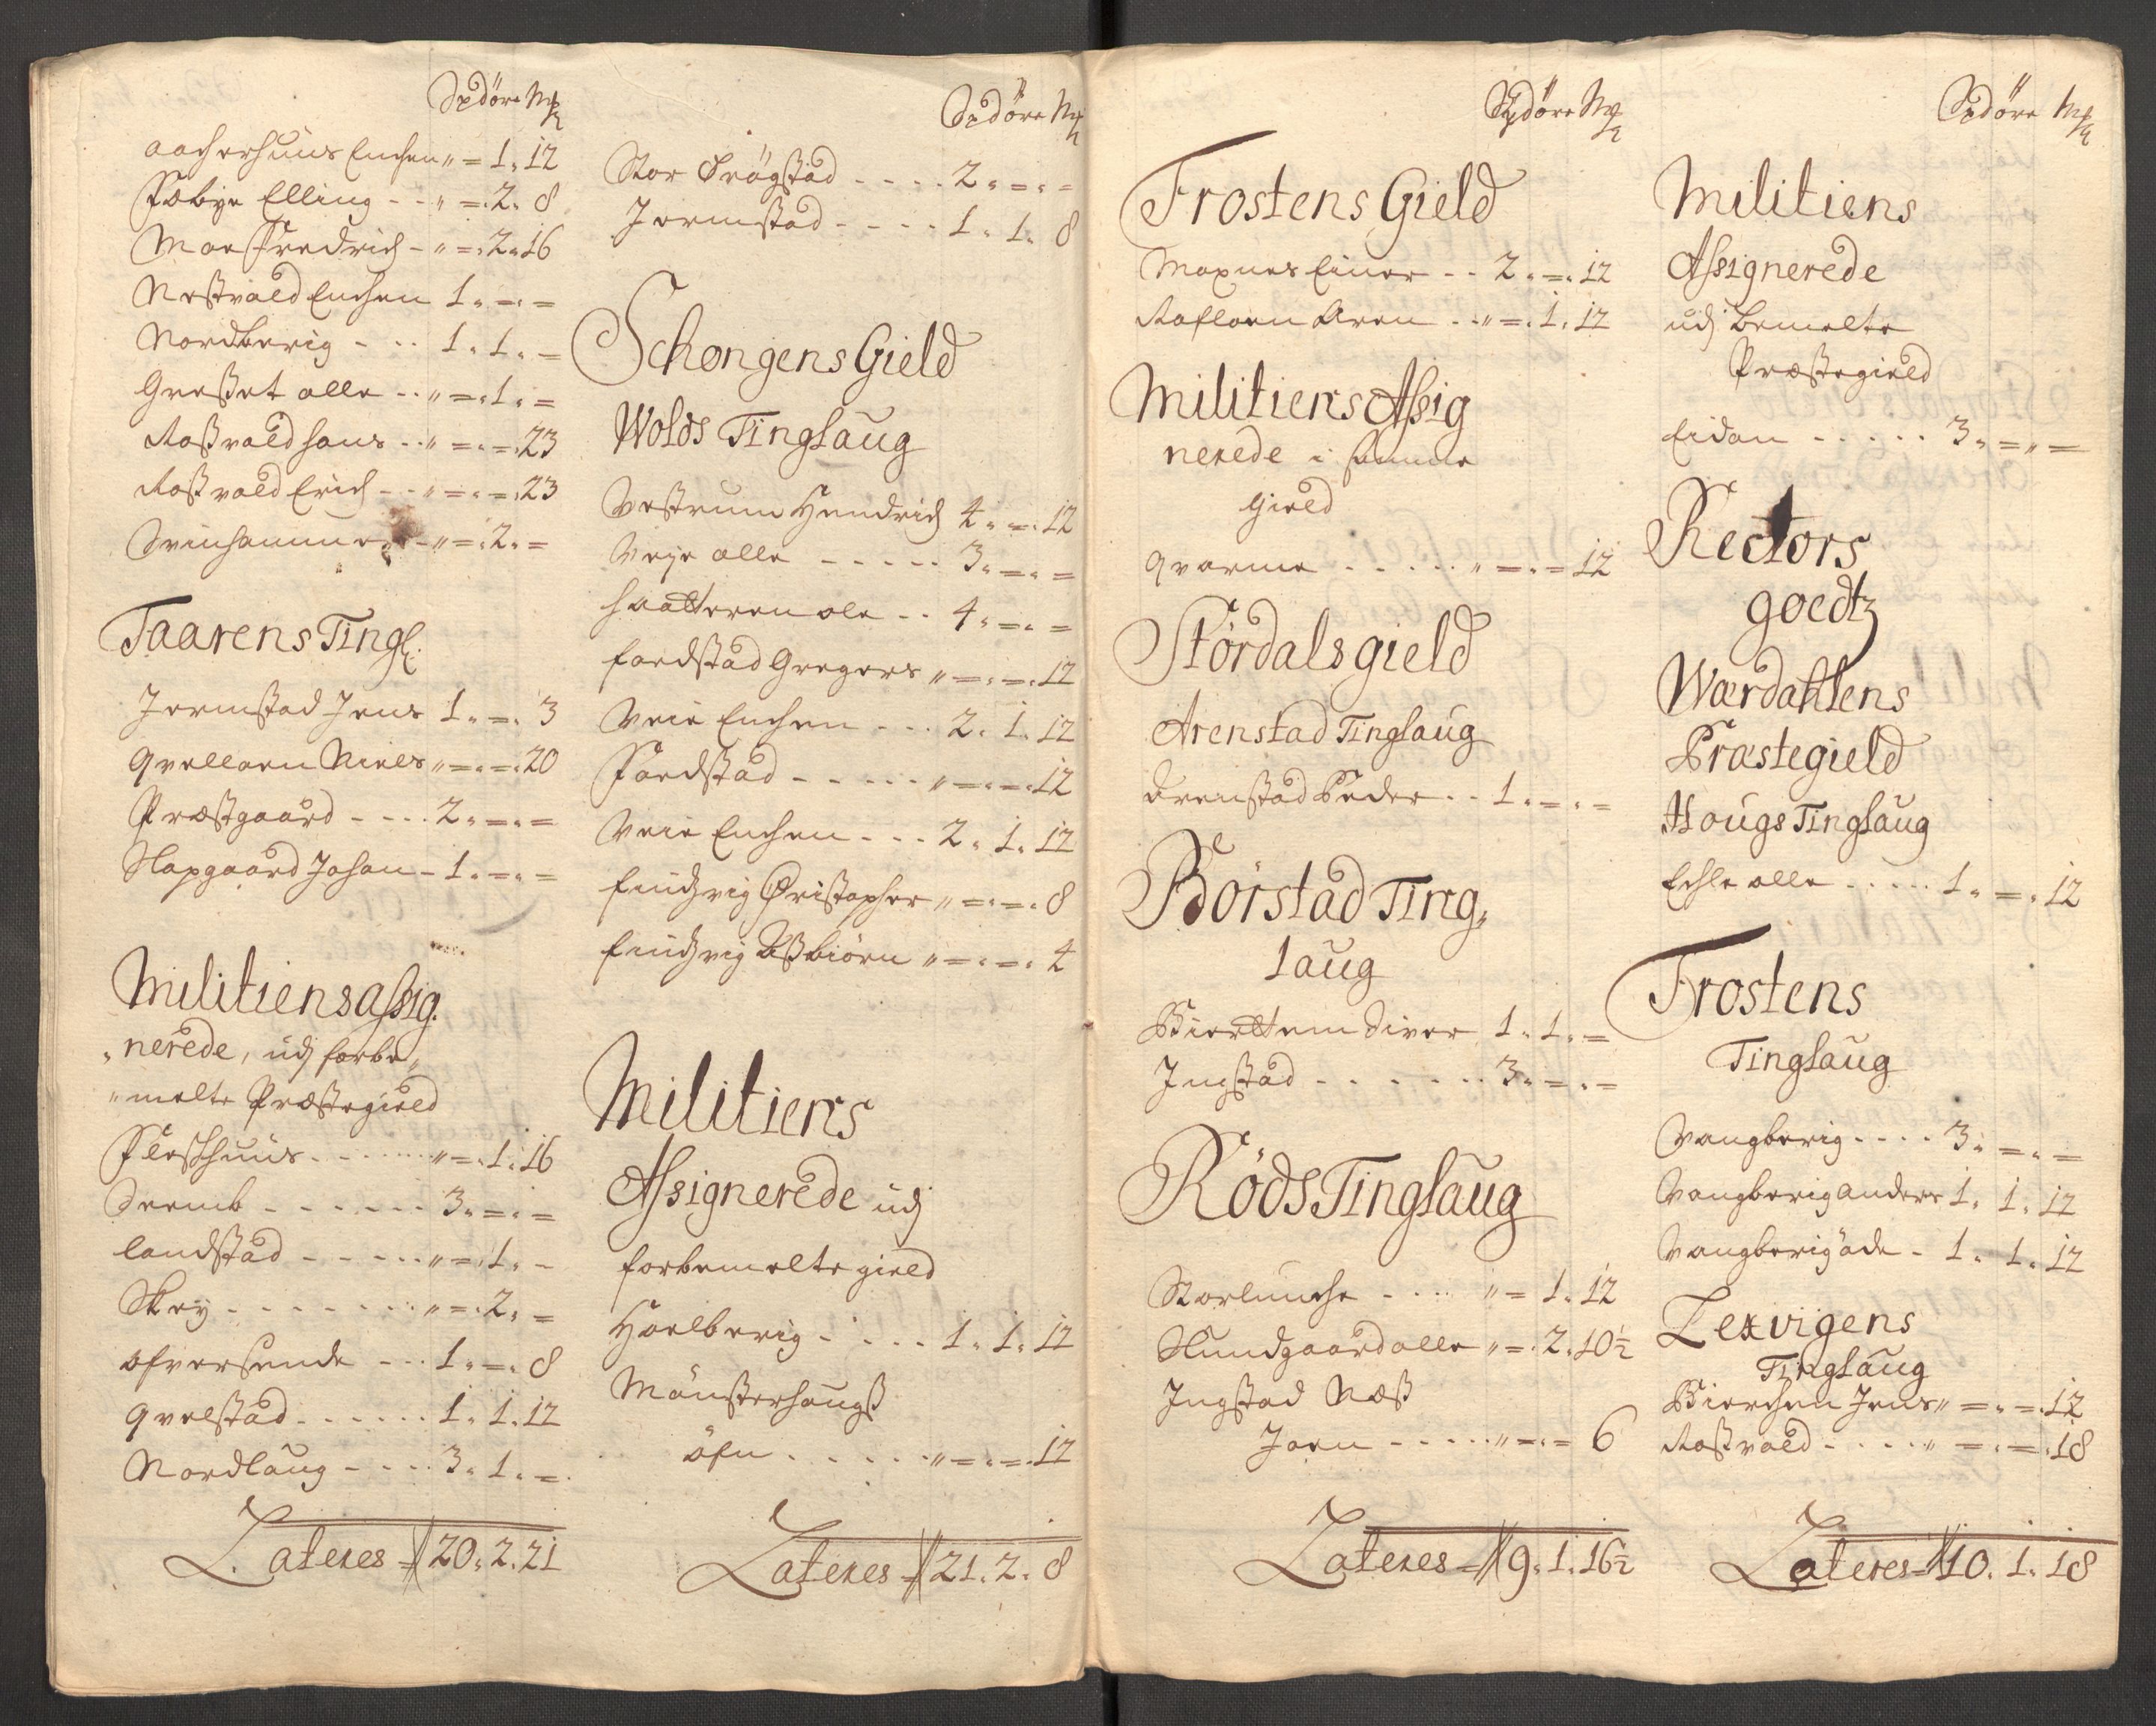 Spd öre Mk
Aacherhuus Enchen „ = 1. 12
Fæbye Elling - - „ = 2. 8
Moe Fredrich - „ = 2. 16
Nestvold Enchen 1. = . =
Nordberig - - - 1. 1. =
Gresset olle - - „ = 1. =
Rosvold hans - - „ = . = 23
Rosvold Erich - - „ = . = 23
Svinhammer - „ = 2. =
Taarens Tingl:
Jermstad Jens 1. = . 3
Qvelloen Niels „ = . = . 20
Præstgaard - - - 2. = . =
Slapgaard Johan - 1. = . =
Militiens assig.
„nerede, udj forbe„
„melte Præstegield
Fleskhuus - - - - „ = . 1. 16
Sremb - - - - - 3. = . =
Landstad - - - - „ = . 1. -
Skey - - - - - - „ = . 2. =
Ofversende - - - 1. = . 8
Qvelstad - - - - 1. 1. 12
Nordlaug - - - 3. 1. =
Lateres - 20. 2. 21
Spd öre Mk
Stor Trögstad - - - - 2. = . =
Jermstad - - - - 1. 1. 8
Schongens Gield
Wolds Tinglaug
Vestrum Hendrich 4. = . 12
Veye olle - - - - - 3. = . =
Haatteren ole - - 4. = . =
Foedstad Gregers „ = . = . 12
Veie Enchen - - - 2. 1. 12
Foedstad - - - - - „ = . = . 12
Veie Enchen - - - 2. 1. 12
Christopher „ = . = . 8
Assbiörn „ = . = . 4
Militiens
Assignerede udj
forbemelte gield
Hoelberig - - - - 1. 1. 12
Mönsterhaugs
öfn - - - - - „ = . = . 12
Lateres - 21. 2. 8
Spd öre Mk
Frostens Gield
Moxnes Einer - - 2. = . 12
Rofloen Aren - - „ = . 1. 12
Militiens Assig
nerede i samme
Gield
Qvarme - - - - - „ = . = 12
Stördals gield
Arenstad Tinglaug
Arenstad Peder - - 1. = . =
Börstad Ting„
laug
Bierttem Siver 1. 1. =
Ingstad - - - - - - 3. = . =
Röds Tinglaug
Storlunche - - - - „ = 1. 12
Hundgaard olle „ = . 2. 10½
Ingstad Næss
Joen - - - - - „ = . = 6
Lateres - 9. 1. 16½
Spd öre Mk
Militiens
Assignerede
udj bemelte
Præstegield
Eidan - - - - - 3. = „ =
Rectors
goedtz
Wærdahlens
Præstegield
Hougs Tinglaug
Echle olle - - - - - 1. = . 12
Frostens
Tinglaug
Vangberig - - - - 3. = . =
Vangberig anders 1. 1. 12
Vangberig ade - 1. 1. 12
Lexvigens
Tinglaug
Bierchen Jens „ = . = . 12
Rosvold - - - - „ = . = . 18
Lateres - 10. 1. 18